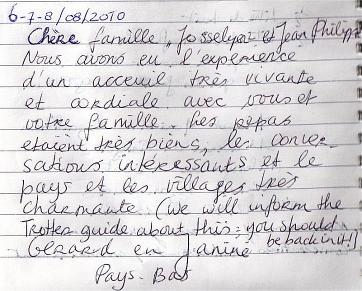 6-7-8/08/2010
Chère famille, Josselyne et Jean Philippe
Nous avons eu l'experience
d'un acceuil très vivante
et cordiale avec vous et
votre famille. Les repas
etaient très biens, les conver
sations interessants et le
pays et les villages très
charmante (we will inform the
Trotter guide about this: you should
be back in it!)
Gerard en Janine
Pays-Bas